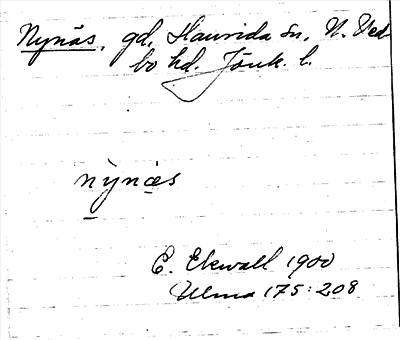 Nynäs, gd, Haurida sn, N. Ved
bo hd. Jönk. l.
nỳnæs
E. Ekwall 1900
Ulma 175:208